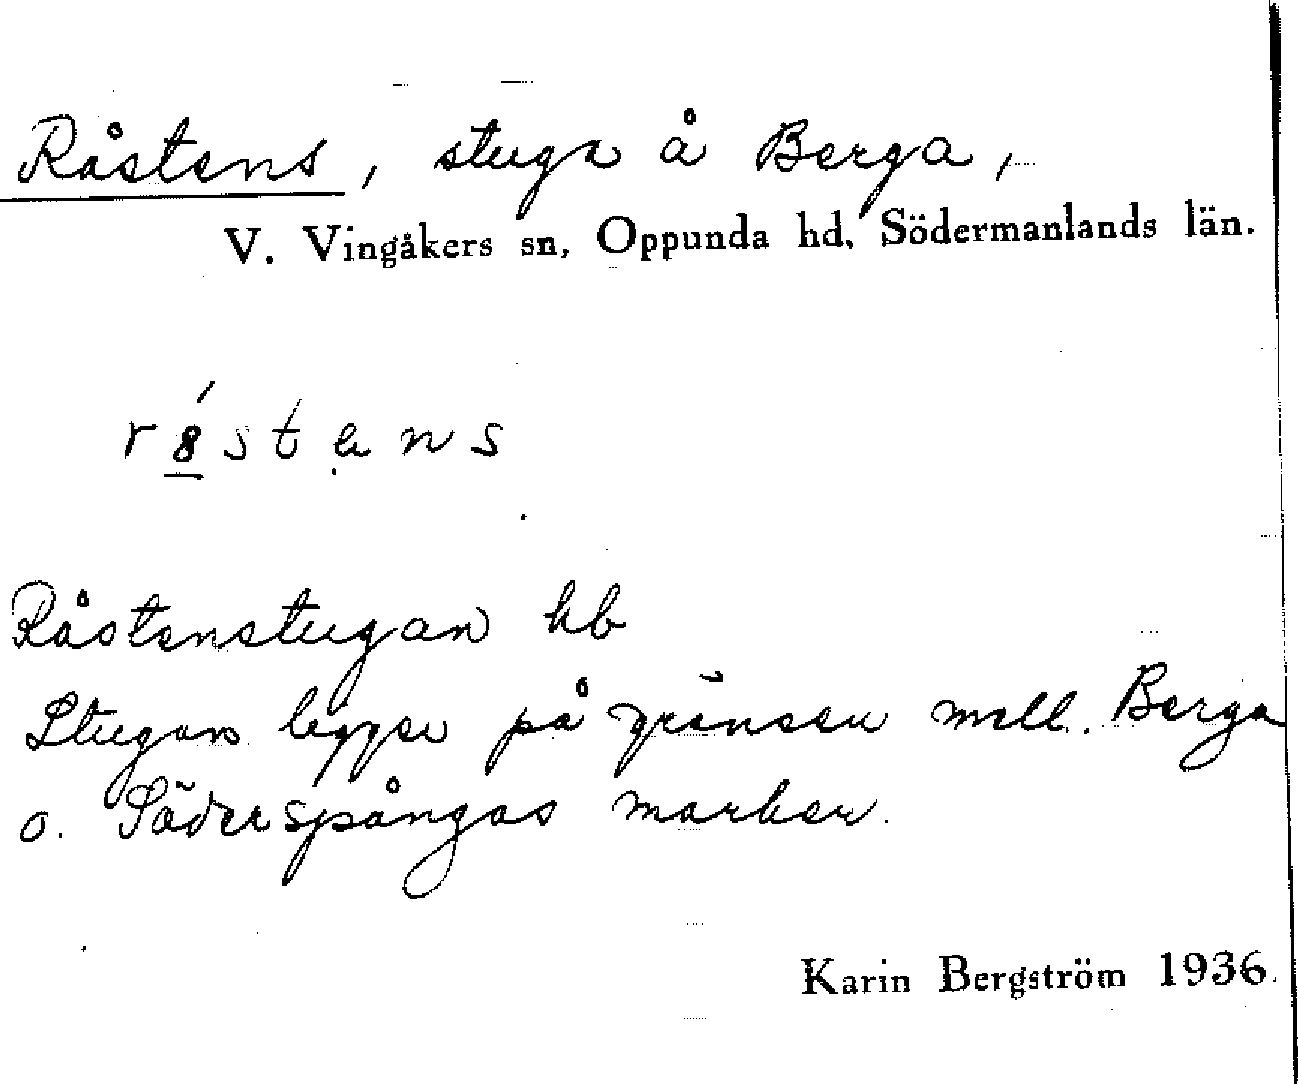 Råstens, stuga å Berga,
V. Vingåkers sn, Oppunda hd, Södermanlands län.
Råstenstugan hb
Stugan ligger på gränsen mell. Berga
o. Söderspångas marker.
Karin Bergström 1936.